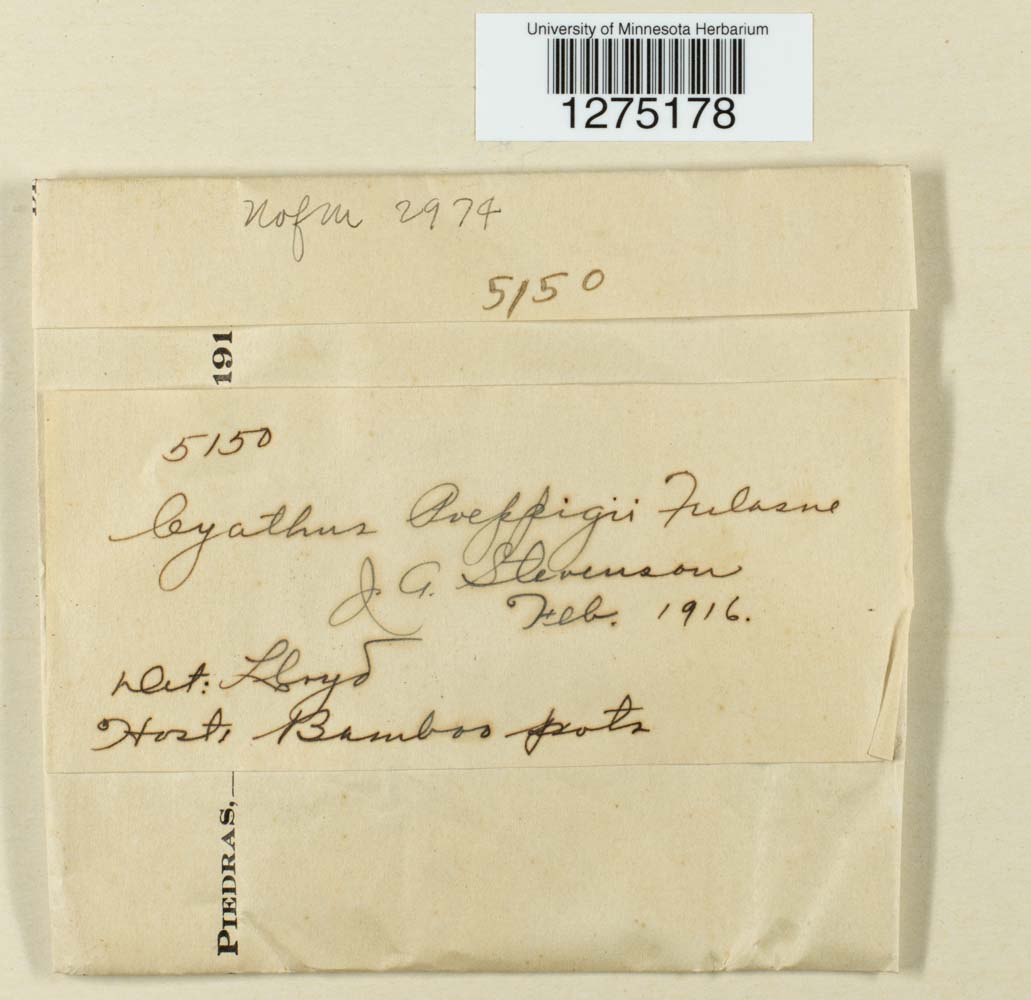 University of Minnesota Herbarium
1275178
UofM 2974
5150
191
5150
Cyathus Poeppigii Tulasne
J. A. Stevenson
Feb. 1916.
Det: Lloyd
Host: Bamboo pots
PIEDRAS,